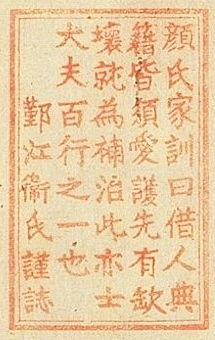 顔氏家訓曰借人典
籍皆須愛護先有缺
壞就為補治此亦士
大夫百行之一也
鄞江衞氏謹誌